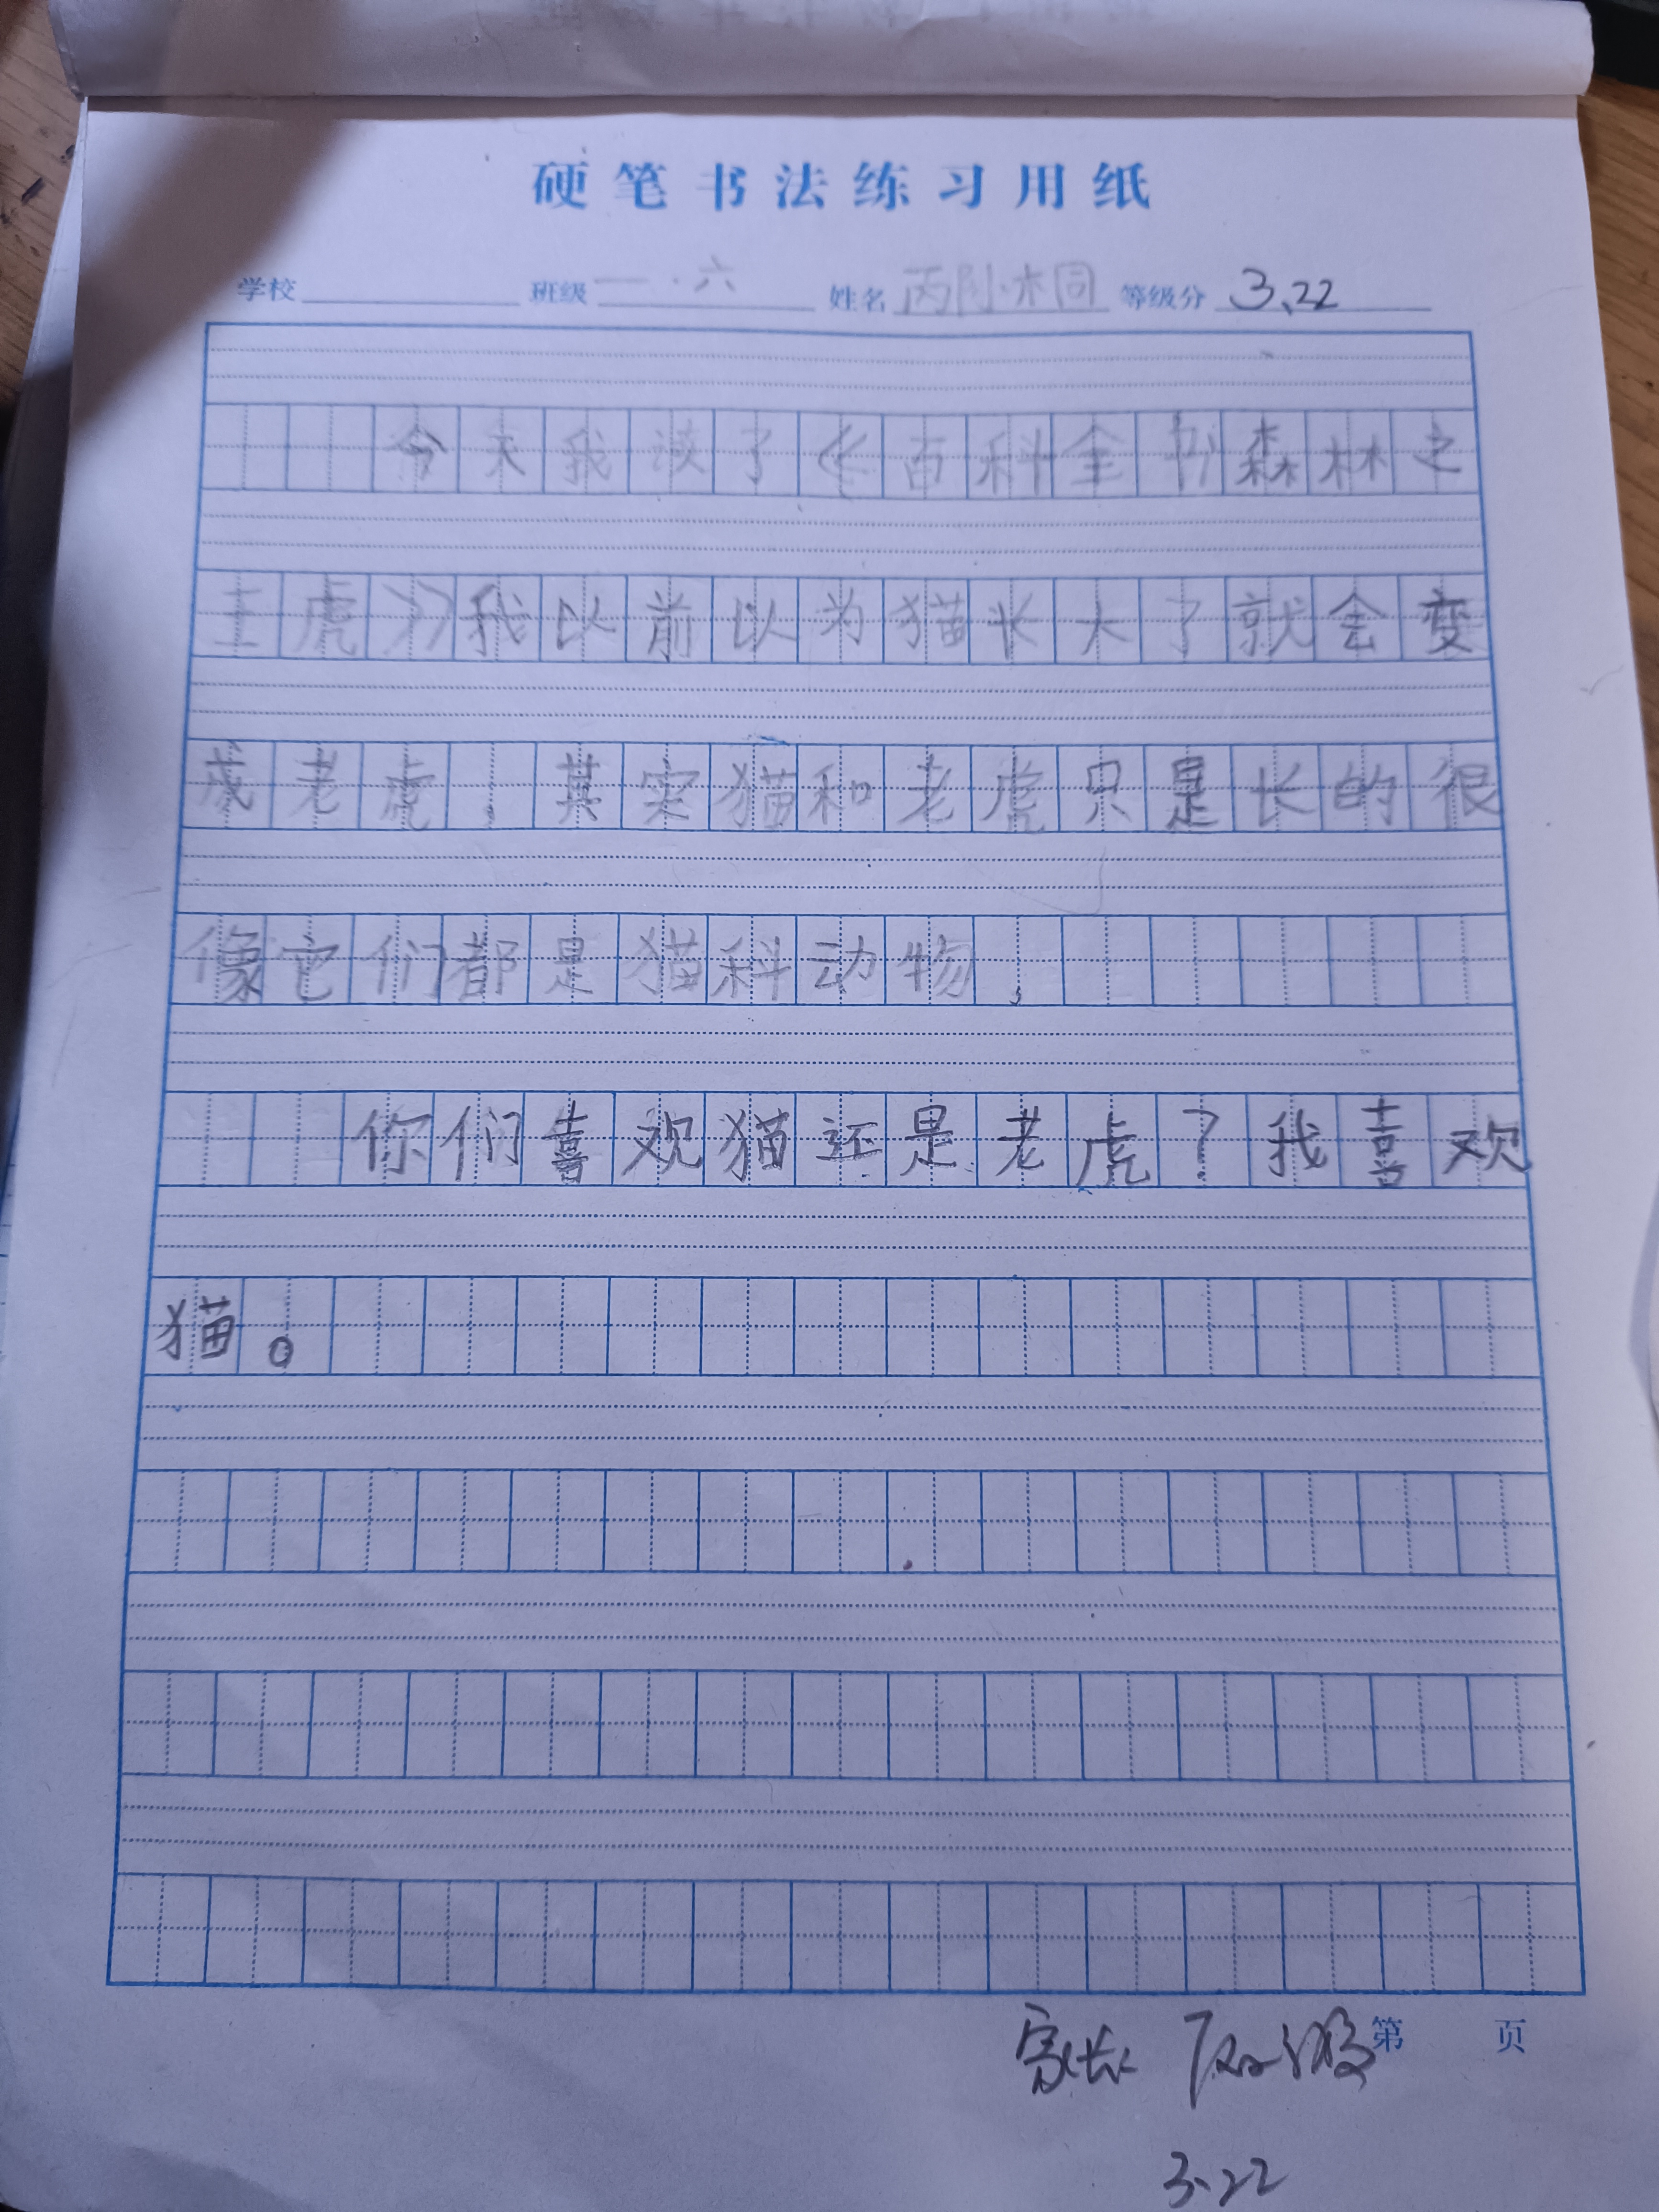 硬笔书法练习用纸
学校 班级 一.六 姓名 丙陈小桐 等级分 3.22
今天我读了《百科全书森林之
王虎》我以前以为猫长大了就会变
成老虎,其实猫和老虎只是长的很
像它们都是猫科动物,
你们喜欢猫还是老虎?我喜欢
猫。
第 页
家长
3.22